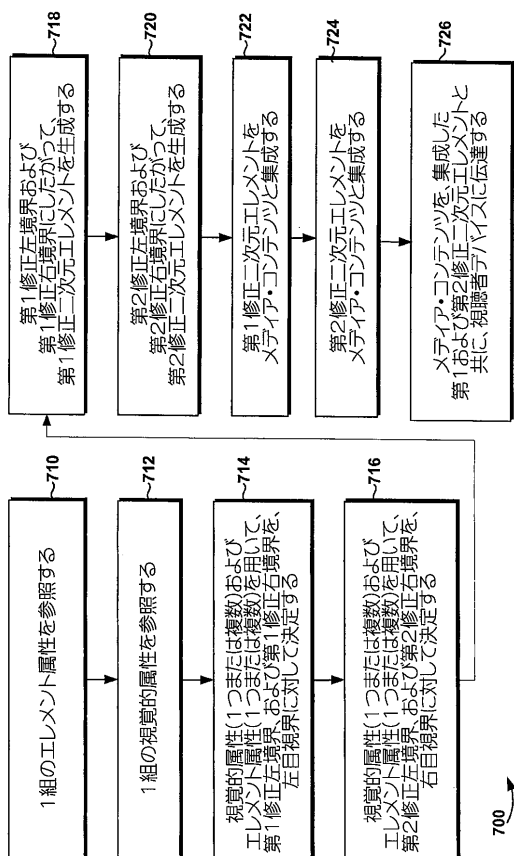 710
1組のエレメント属性を参照する
712
1組の視覚的属性を参照する
714
視覚的属性(1つまたは複数)および
エレメント属性(1つまたは複数)を用いて、
第1修正左境界、および第1修正右境界を、
左目視界に対して決定する
716
視覚的属性(1つまたは複数)および
エレメント属性(1つまたは複数)を用いて、
第2修正左境界、および第2修正右境界を、
右目視界に対して決定する
718
第1修正左境界および
第1修正右境界にしたがって、
第1修正二次元エレメントを生成する
720
第2修正左境界および
第2修正右境界にしたがって、
第2修正二次元エレメントを生成する
722
第1修正二次元エレメントを
メディア・コンテンツと集成する
724
第2修正二次元エレメントを
メディア・コンテンツと集成する
726
メディア・コンテンツを、集成した
第1および第2修正二次元エレメントと
共に、視聴者デバイスに伝達する
700